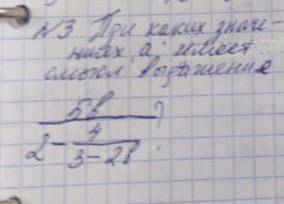 N3 При каких значе-
ниях a имеет
смысл выражения
5b
2 - 4 ?
3 - 2b